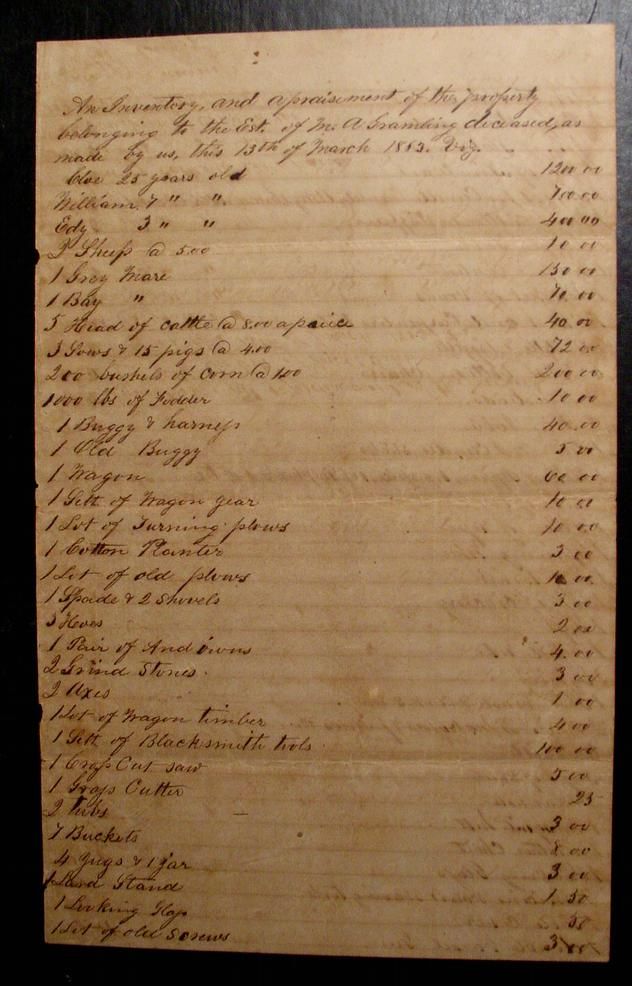 An Inventory, and apraisement of the property
belonging to the Est. of M. A Grambling deceased, as
made by us, this 13th of March 1863. Viz.
Cloe 25 years old 1200 00
William 7 " " 700 00
Edy 3 " " 400 00
2 Sheep @ 5.00 10 00
1 Grey Mare 150 00
1 Bay " 70 00
5 Head of cattle @ 8.00 apeice 40 00
3 Sows & 15 pigs @ 4.00 72 00
200 bushels of corn @ 1.00 200 00
1000 lbs of Fodder 10 00
1 Buggy & harness 40.00
1 Old Buggy 5 00
1 Wagon 60 00
1 Sett of Wagon gear 10 00
1 Lot of Turning plows 10 00
1 Cotton Planter 3 00
1 Lot of old plows 00
1 Spade & 2 Shovels 3 00
3 Hoes 2 00
1 Pair of And irons 4.00
2 Grind Stones. 3 00
2 Axes 1 00
1 Lot of Wagon timber 4 00
1 Sett of Blacksmith tools 100 00
1 Cross Cut saw 5 00
1 Cutter 25
2 Tubs 3 00
7 Buckets 8.00
4 Jugs & 1 jar 3 00
Stand 1.50
1 Looking Glass 50
1 Lot of old Screws 3.00